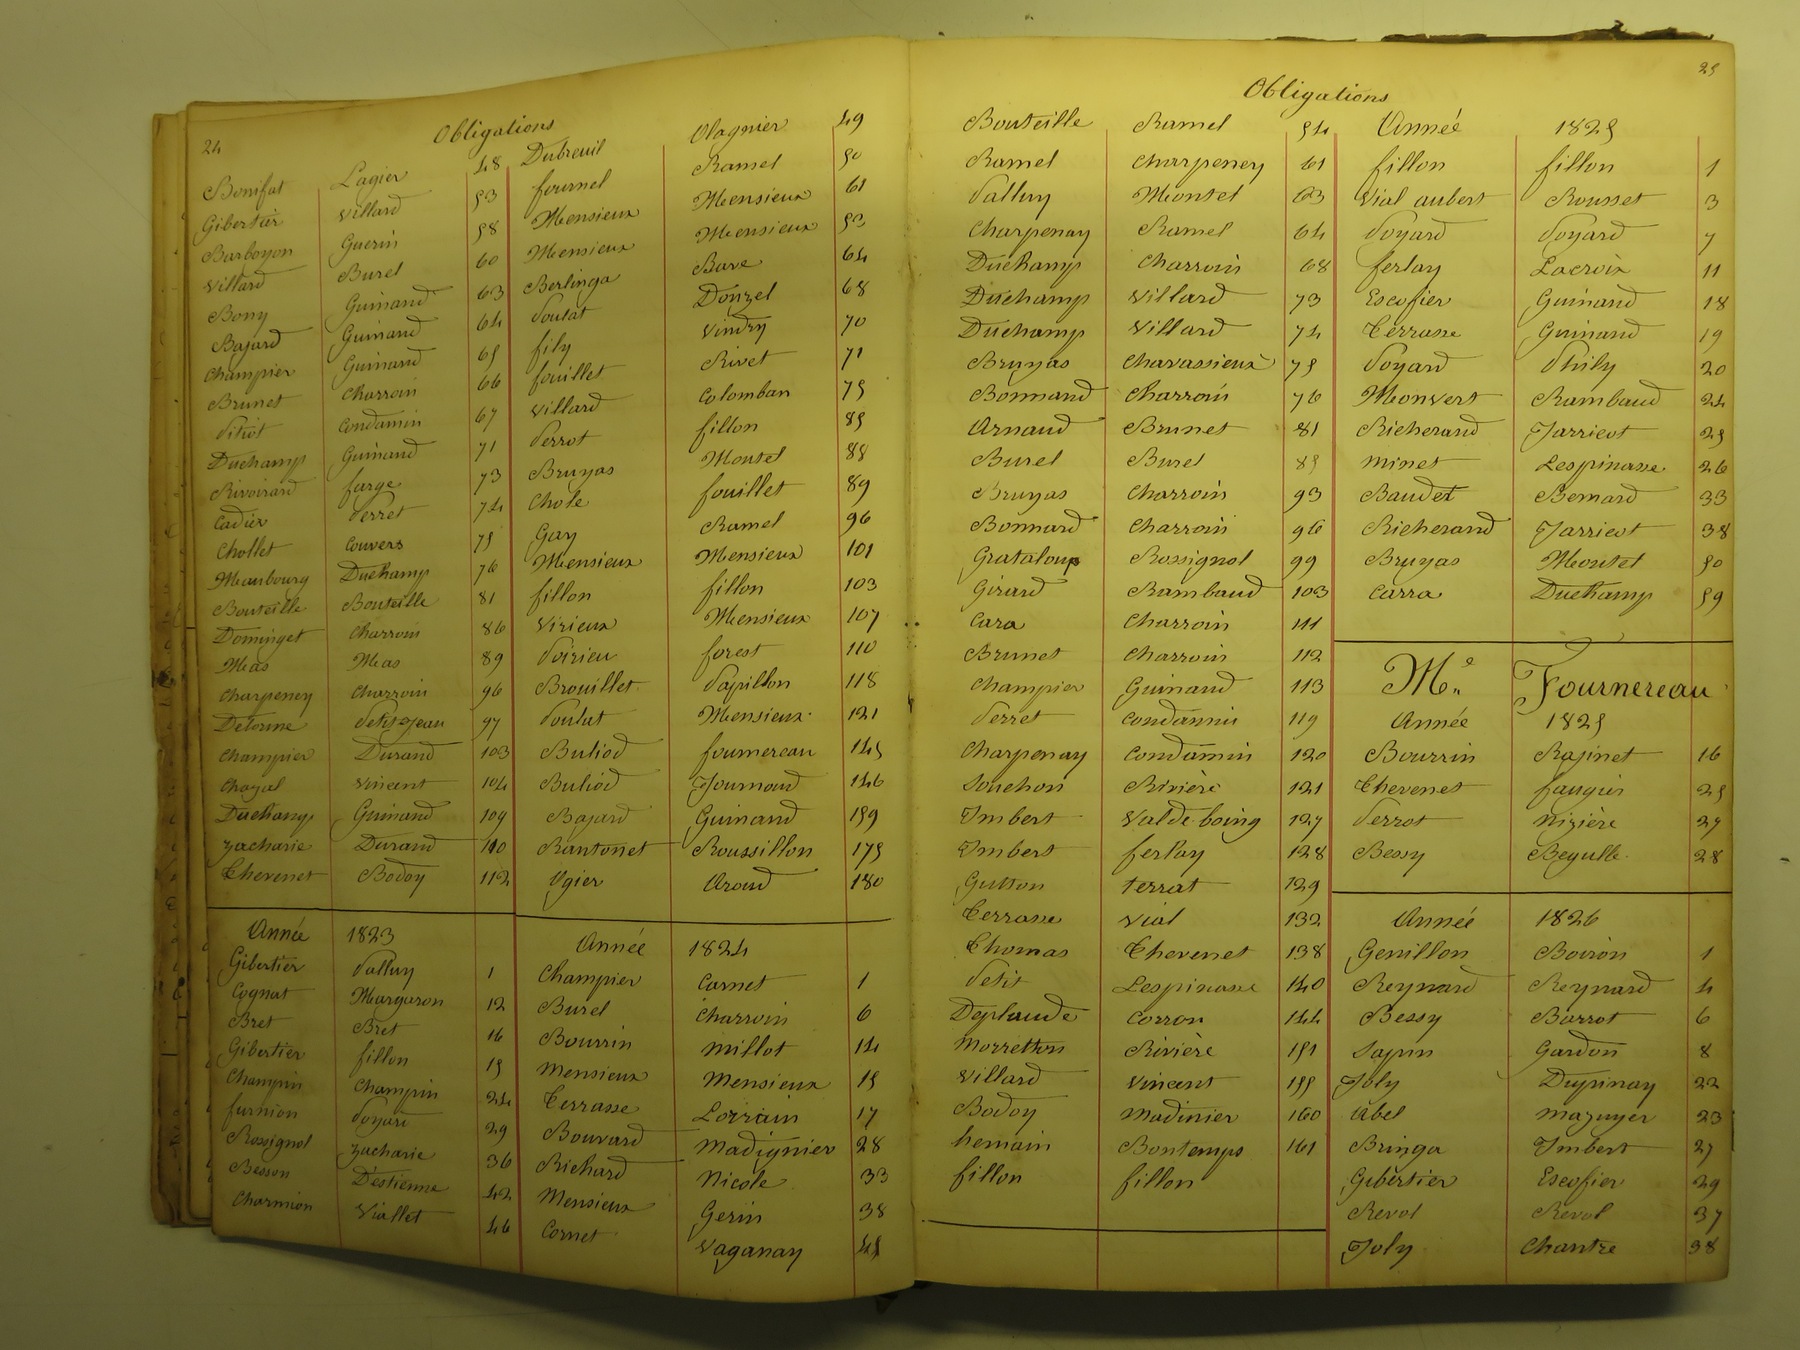 24
Obligations
Bonifat Lagier 48
Gibertier Villard 53
Barboyon Guerin 58
Villard Burel 60
Bony Guinand 63
Bajard Guinand 64
Champier Guinand 65
Brunet Charroin 66
Pitiot Condamin 67
Duchamp Guinand 71
Rivoirard farge 73
Cadier Perret 74
Chollet Couvers 75
Maubourg Duchamp 76
Bouteille Bouteille 81
Dominget Charroin 86
Mas Mas 89
Charpeney Charroin 96
Delorme Petitjean 97
Champier Durand 103
Chazal Vincent 104
Duchamp Guinand 109
Zacharie Durand 110
Thevenet Bodoy 112
Année 1823
Gibertier Valluy 1
Cognat Marguron 12
Bret Bret 16
Gibertier fillon 15
Champin Champin 24
furnion Poyard 29
Rossignol Zacharie 36
Besson Déstienne 42
Charmion Viallet 46
Dubreuil Olagnier 49
fournel Ramel 50
Mensieux Mensieux 61
Mensieux Mensieux 53
Berlinga Bave 64
Poulat Donzel 68
fily Vindry 70
fouillet Rivet 71
Villard Colomban 75
Perrot fillon 85
Bruyas Montel 88
Chole fouillet 89
Gay Ramel 96
Mensieux Mensieux 101
fillon fillon 103
Virieux Mensieux 107
Poirieu forest 110
Brouillet Papillon 118
Poulat Mensieux 121
Buliod fournereau 145
Buliod Journoud 146
Bajard Guinand 159
Rantonnet Roussillon 175
Ogier Aroud 180
Année 1824
Champier Carnet 1
Burel Charroin 6
Bourrin Millot 14
Mensieux Mensieux 15
Terrasse Lorrain 17
Bouvard Madignier 28
Richard Nicole 33
Mensieux Gerin 38
Cornet Vaganay 45
25
Obligations
Bouteille Ramel 54
Ramel Charpeney 61
Valluy Montel 63
Charpenay Ramel 64
Duchamp Charroin 68
Duchamp Villard 73
Duchamp Villard 74
Bruyas Chavassieux 75
Bonnand Charroin 76
Arnaud Brunet 81
Burel Burel 85
Bruyas Charroin 93
Bonnard Charroin 96
Grataloup Rossignol 99
Girard Rambaud 103
Cara Charroin 111
Brunet Charroin 112
Champier Guinand 113
Perret Condamin 119
Charpenay Condamin 120
Souchon Rivière 121
Imbert Valdeboing 127
Imbert ferlay 128
Gutton terrat 129
Terrasse Vial 132
Thomas Thevenet 138
Petit Lespinasse 140
Deplaude Corron 144
Morretton Rivière 151
Villard Vincent 155
Bodoy Madinier 160
hemain Bontemps 161
fillon fillon
Année 1825
fillon fillon 1
Vial aubert Rousset 3
Poyard Poyard 7
ferlay Lacroix 11
Escofier Guinand 18
Terrasse Guinand 19
Poyard Phily 20
Monvert Rambaud 24
Richerand Jarricot 25
Minet Lespinasse 26
Baudet Bernard 33
Richerand Jarricot 38
Bruyas Montet 50
Carra Duchamp 59
Me Fournereau
Année 1825
Bourrin Rajinet 16
Thevenet faugier 25
Perrot Nizière 27
Bessy Begulle 28
Année 1826
Genillon Boiron 1
Reynard Reynard 4
Bessy Barrot 6
Sapin Gardon 8
Joly Dupinay 22
Abel Mazuyer 23
Bringa Imbert 27
Gibertier Escofier 29
Revol Revol 37
Joly Chantre 38